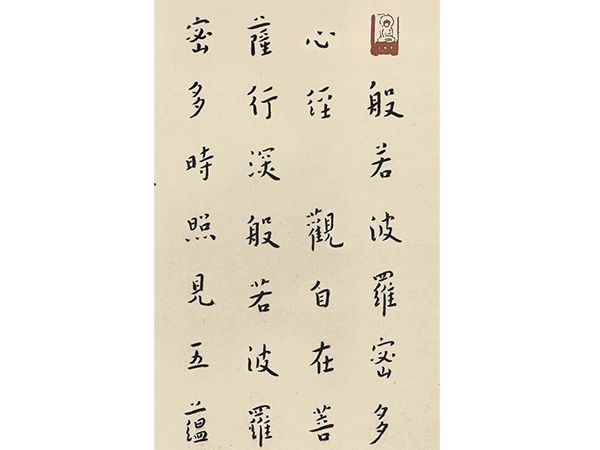 般若波羅密多
心經　觀自在菩
薩行深般若波羅
密多時照見五蘊